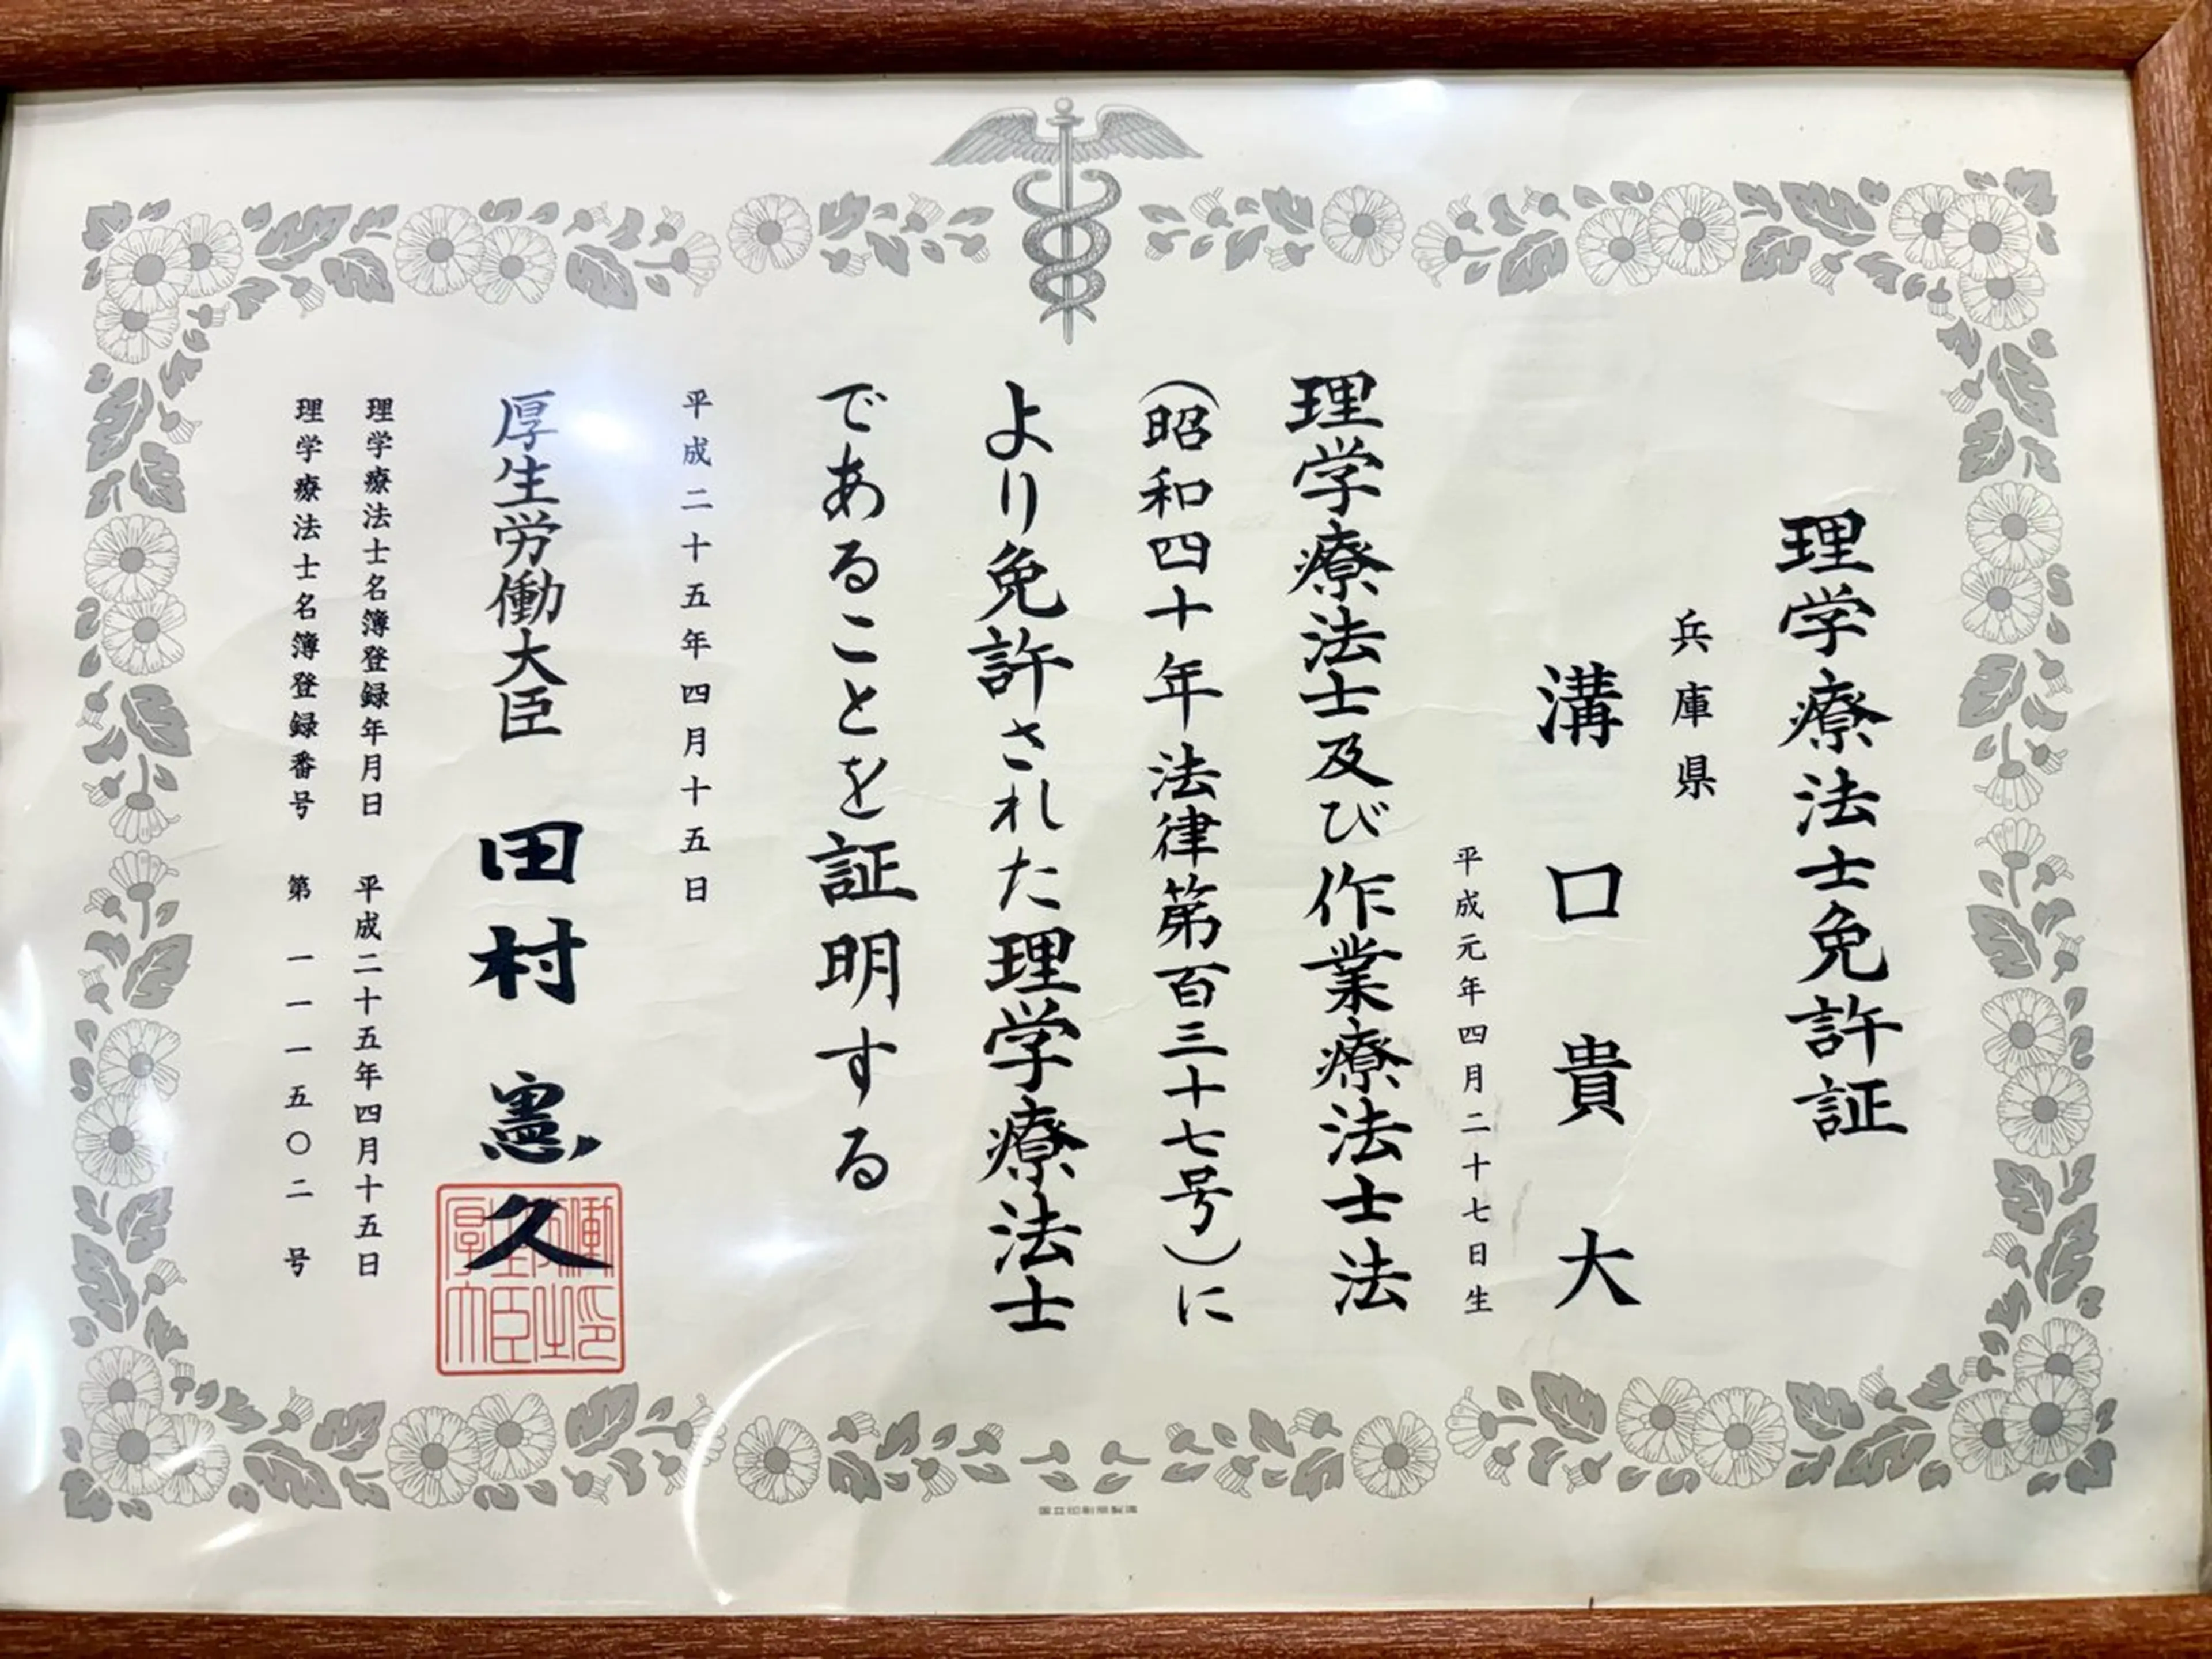 理学療法士免許証
兵庫県
溝口貴大
平成元年四月二十七日生
理学療法士及び作業療法士法
(昭和四十年法律第百三十七号)に
より免許された理学療法士
であることを証明する
平成二十五年四月十五日
厚生労働大臣 田村憲久
理学療法士名簿登録年月日 平成二十五年四月十五日
理学療法士名簿登録番号 第 一一一五〇二 号
国立印刷局製造